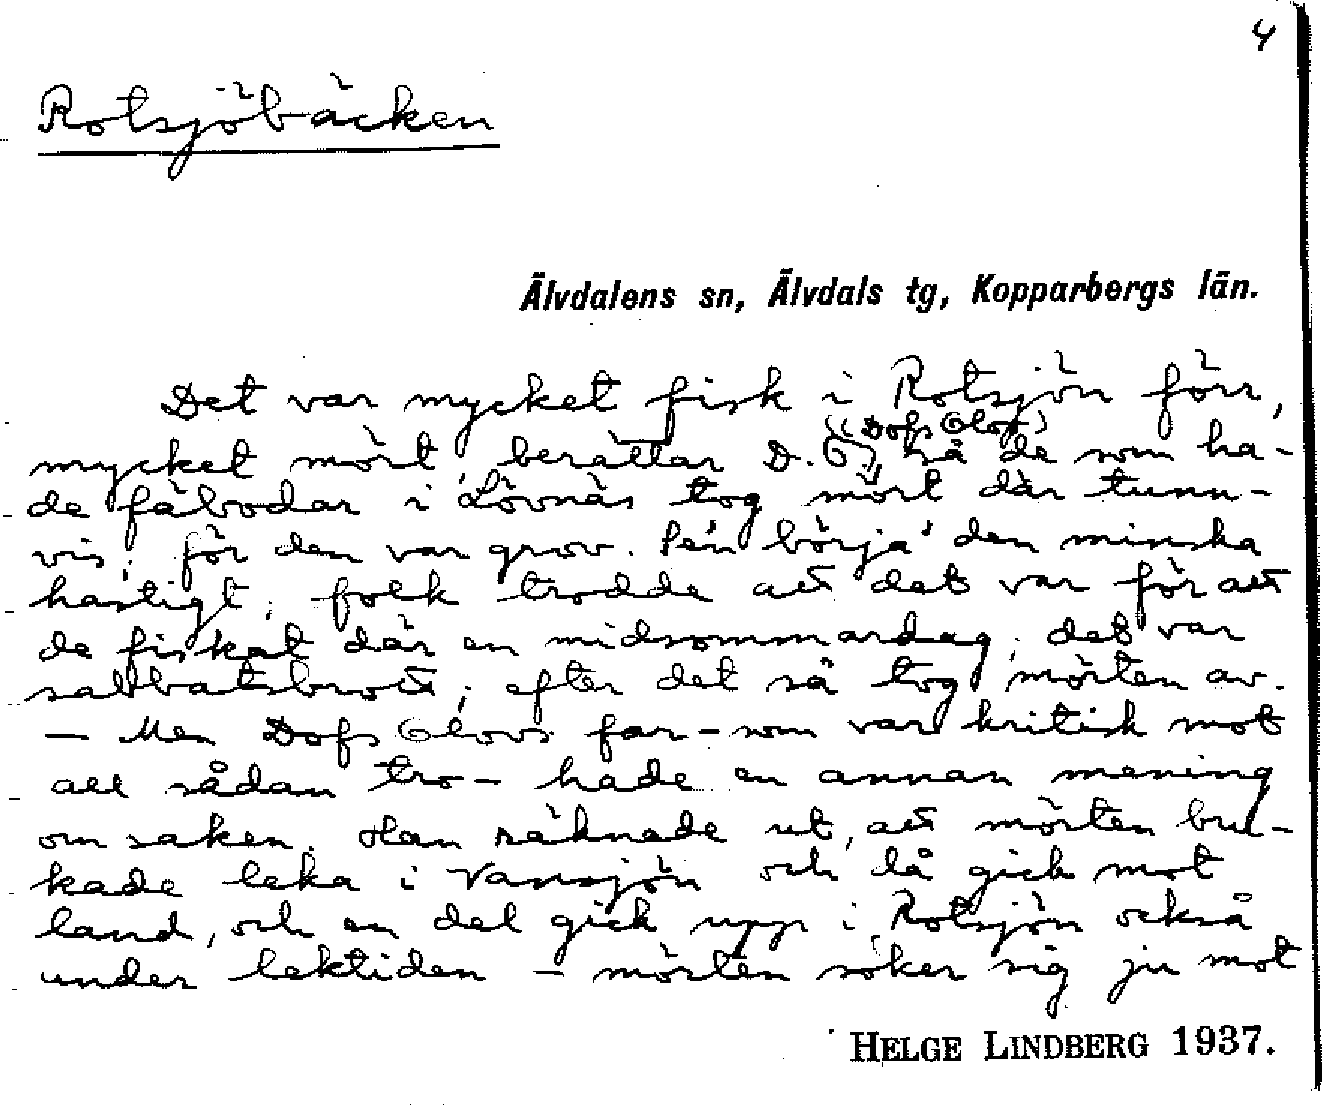 4
Rotsjöbäcken
Älvdalens sn, Älvdals tg, Kopparbergs län.
Det var mycket fisk i Rotsjön förr,
mycket mört, berättar D.O. (Dofs Olof), så de som ha-
de fäbodar i Lövnäs tog mört där tunn-
vis, för den var grov. Se'n börja' den minska
hastigt; folk trodde att det var för att
de fiskat där en midsommardag; det var
sabbatsbrott; efter det så tog mörten av.
— Men Dofs Olovs far – som var kritisk mot
all sådan tro – hade en annan mening
om saken. Han räknade ut, att mörten bru-
kade leka i Vansjön och då gick mot
land, och en del gick upp i Rotsjön också
under lektiden – mörten söker sig ju mot
HELGE LINDBERG 1937.